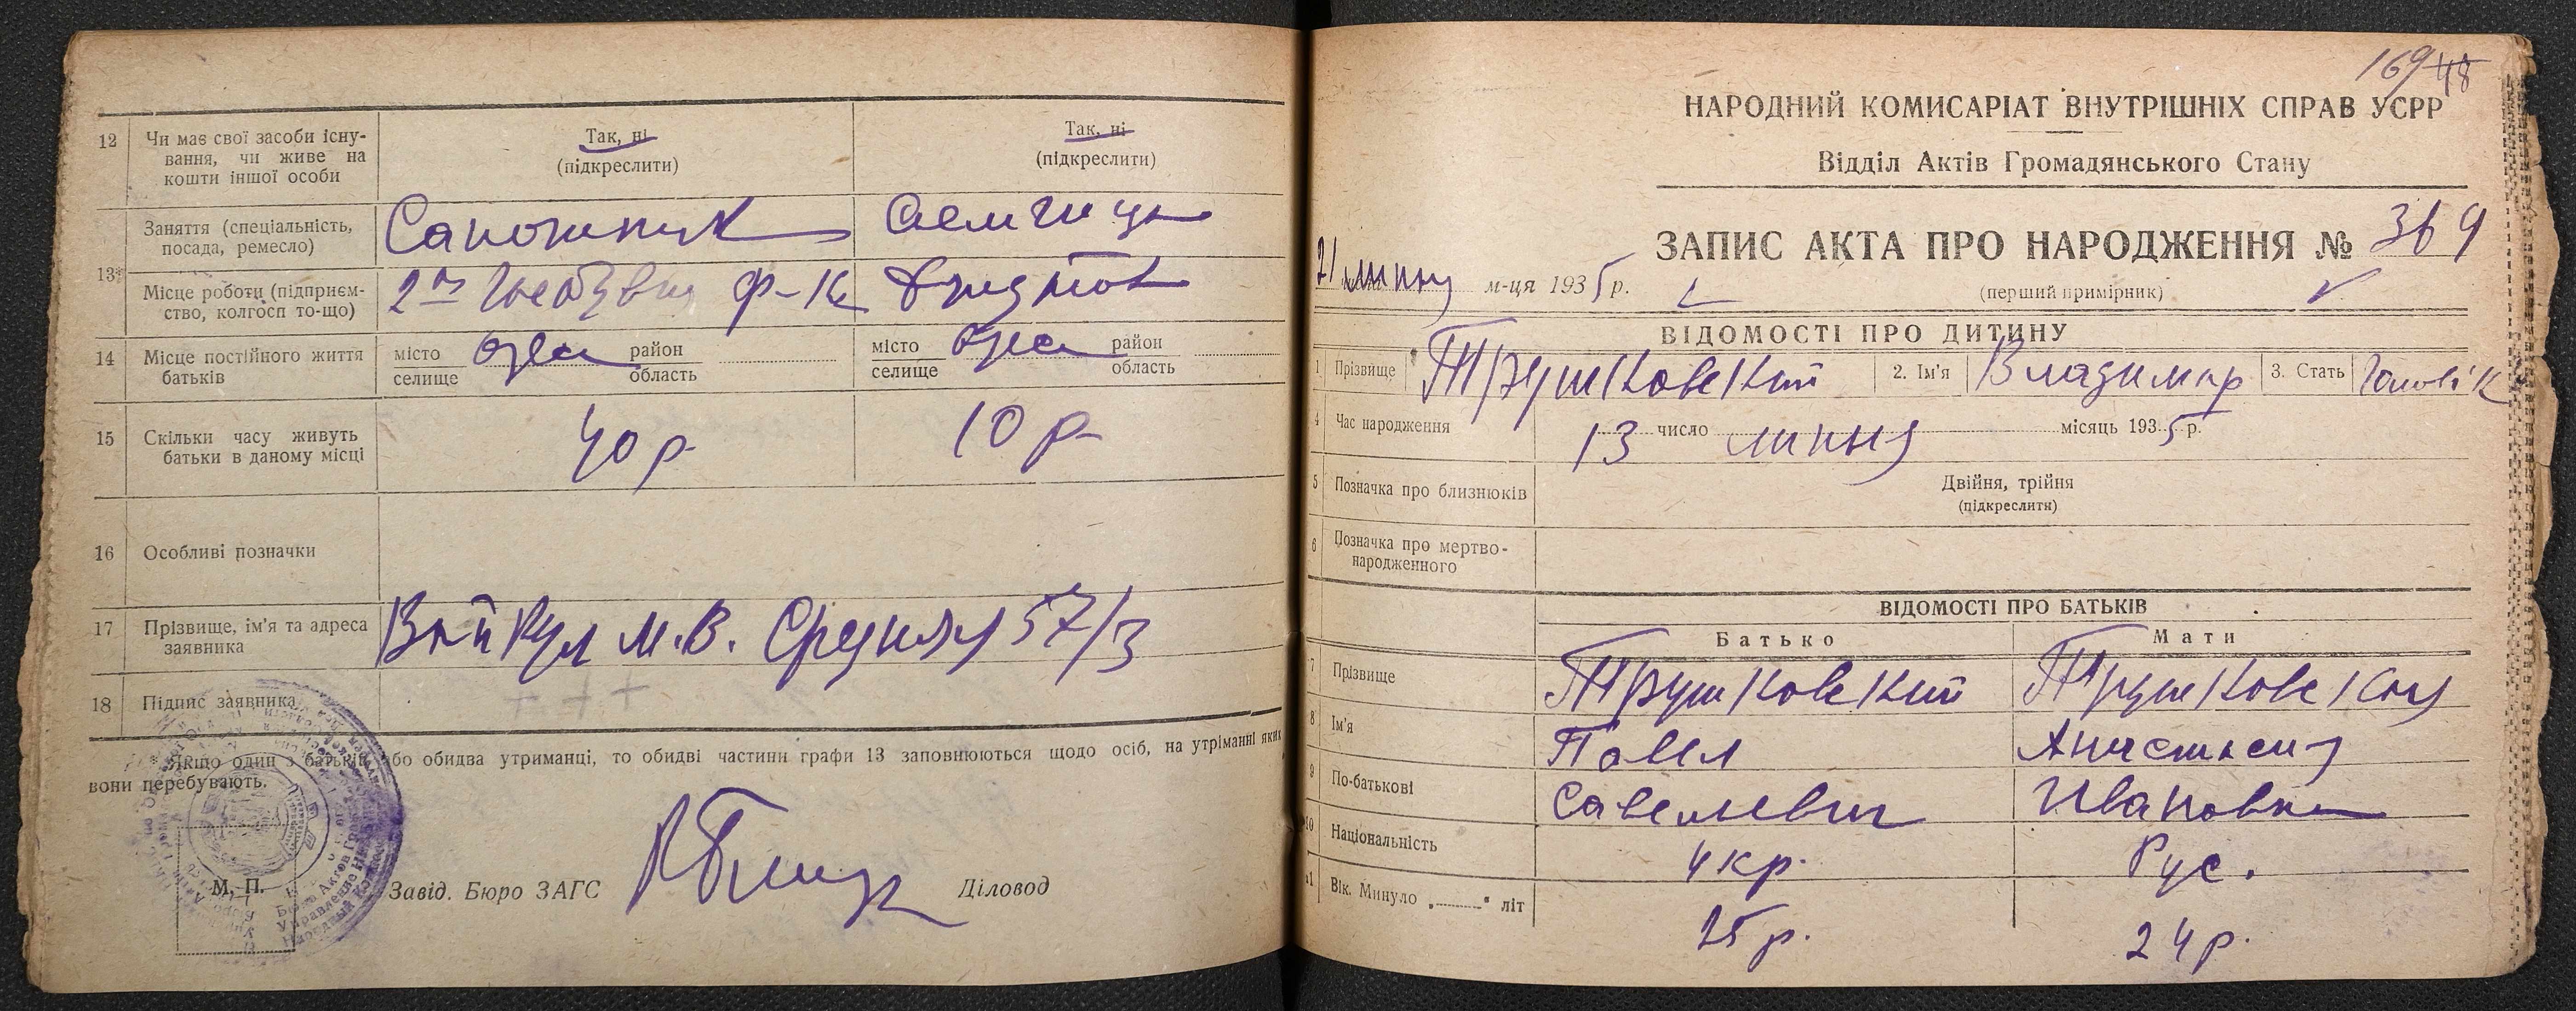 12 Чи має свої засоби існу-
вання, чи живе на
кошти іншої особи
Так, ні
(підкреслити)
Так, ні
(підкреслити)
13 Заняття (спеціальність,
посада, ремесло)
Сапожник
Місце роботи (підприєм-
ство, колгосп то-що)
2 ф-к
14 Місце постійного життя
батьків
місто Одеса район
селище область
місто Одеса район
селище область
15 Скільки часу живуть
батьки в даному місці
10 р
16 Особливі позначки
17 Прізвище, ім'я та адреса
заявника
Вайкул М.В. Средняя 57/3
18 Підпис заявника
+++
Якщо один з батьків або обидва утриманці, то обидві частини графи 13 заповнюються щодо осіб, на утриманні яких
вони перебувають.
М. П.
Завід. Бюро ЗАГС
Діловод
169 48
НАРОДНИЙ КОМИСАРІАТ ВНУТРІШНІХ СПРАВ УСРР
Відділ Актів Громадянського Стану
ЗАПИС АКТА ПРО НАРОДЖЕННЯ №
21 липня м-ця 1935 р.
(перший примірник)
ВІДОМОСТІ ПРО ДИТИНУ
1 Прізвище Трушковский 2. Ім'я Владимир 3. Стать Чолов'к
4 Час народження 13 число липня місяць 1935 р.
5 Позначка про близнюків
Двійня, трійня
(підкреслити)
6 Позначка про мертво-
народженного
ВІДОМОСТІ ПРО БАТЬКІВ
Батько Мати
7 Прізвище Трушковский Трушковская
8 Ім'я Павел Анастасия
9 По-батькові Савельевич Ивановна
10 Національність Укр. Рус.
11 Вік. Минуло „ “ літ 25 р. 24 р.